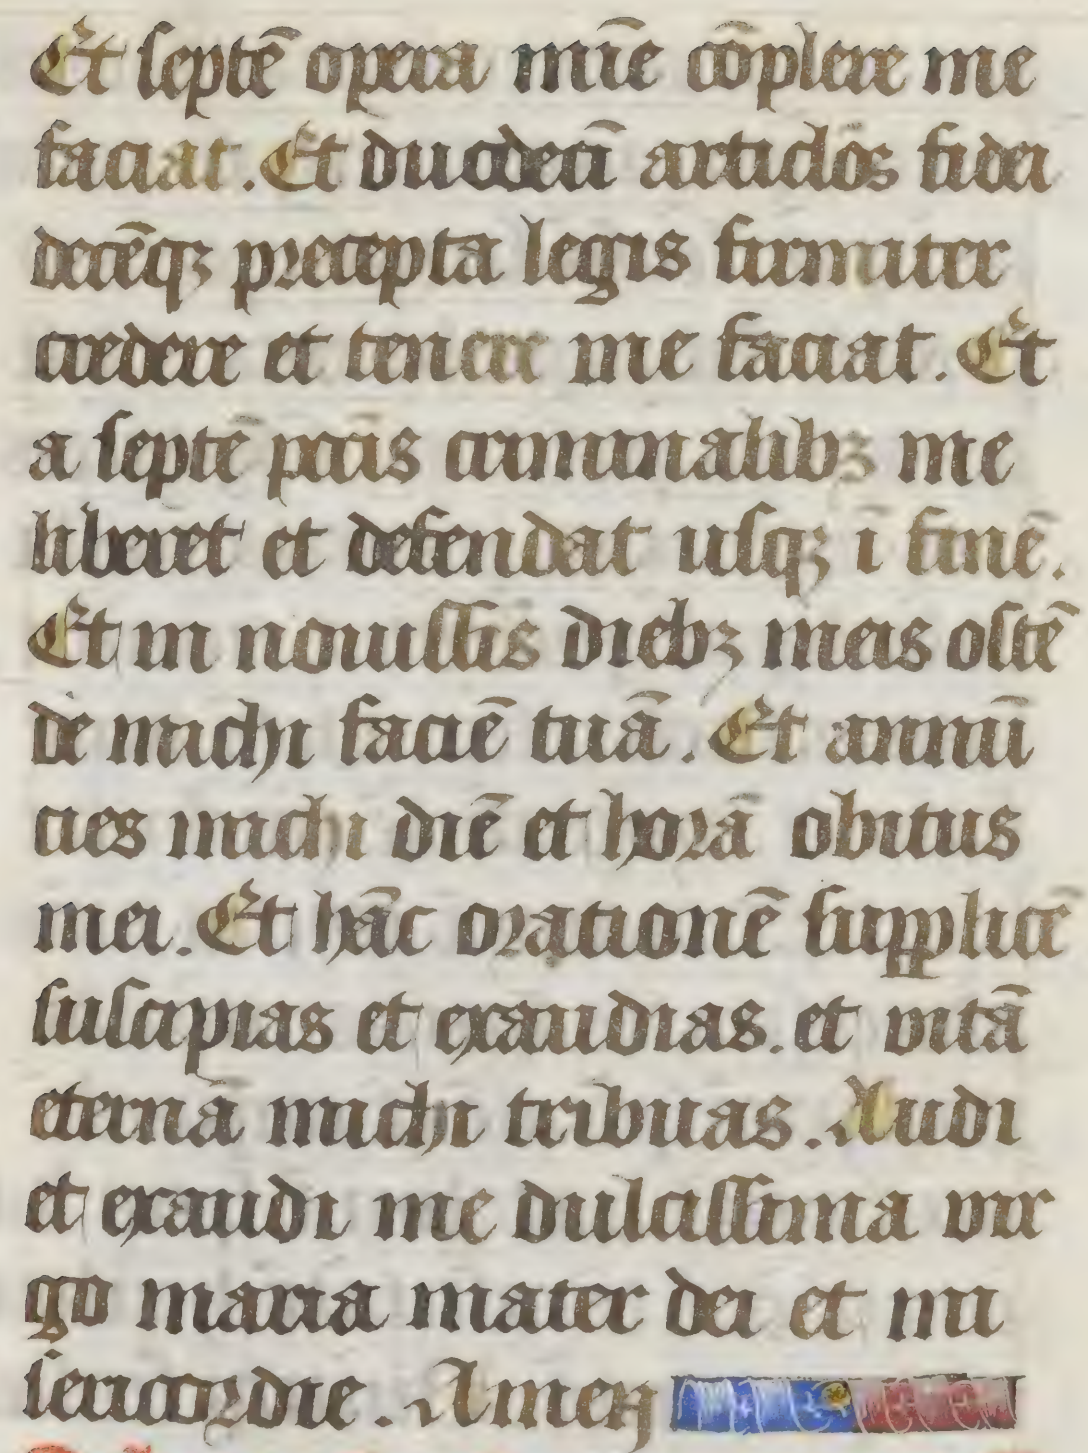 Et septē opera mīe cōplere me
faciat. Et duodecī articlōs fidei
decēqꝫ precepta legis firmiter
credere et tenere me faciat. Et
a septē pccīs criminalibꝫ me
liberet et defendat usqꝫ ī finē.
Et in nouissīs diebꝫ meis ostē
de michi faciē tuā. Et annū
cies michi diē et horā obitus
mei. Et hāc orationē supplicē
suscipias et exaudias. et vitā
eternā michi tribuas. Audi
et exaudi me dulcissima vir
go maria mater dei et mi
sericordie. Amen